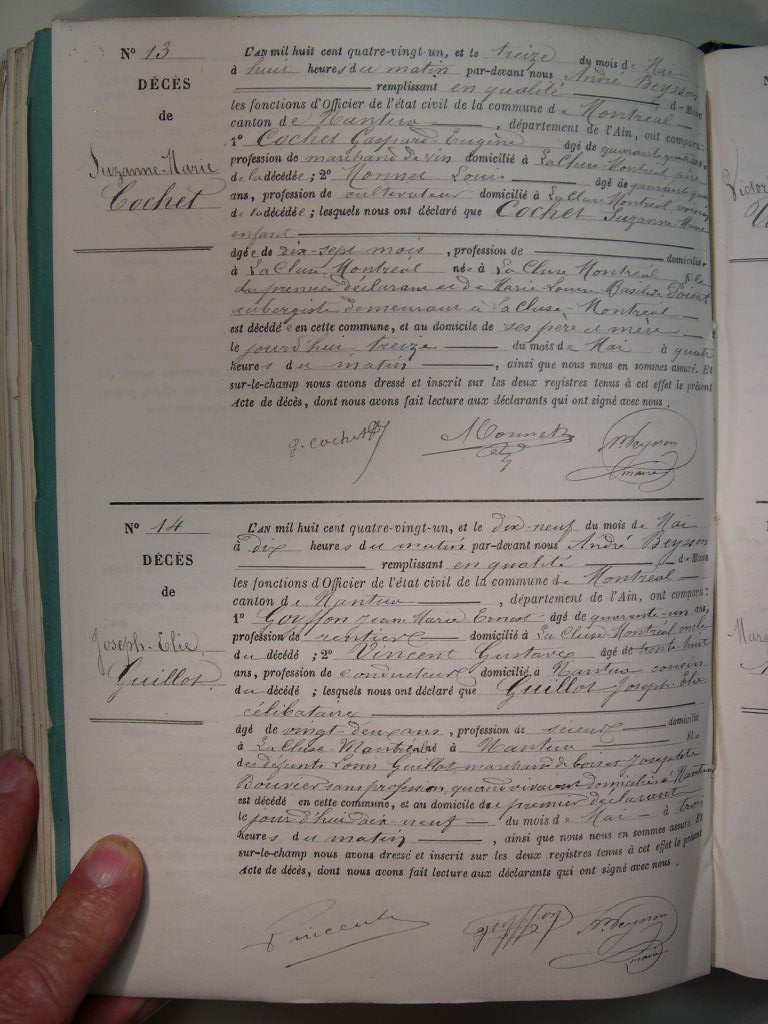 N° 13
DÉCÈS
de
Suzanne-Marie
Cochet
L'AN mil huit cent quatre-vingt-un, et le treize du mois de Mai
à huit heures du matin par-devant nous André Beysson
remplissant en qualité de Maire
les fonctions d'Officier de l'état civil de la commune de Montréal
canton de Nantua, département de l'Ain, ont comparu:
1° Cochet Gaspard Eugène âgé de quarante
profession de marchand de vin domicilié à La Cluse Montréal père
de la décédée; 2° Monnet Louis âgé de quarante
ans, profession de cultivateur domicilié à La Cluse Montréal voisin
de la décédée; lesquels nous ont déclaré que Cochet Suzanne Marie
enfant
âgée de dix-sept mois, profession de domiciliée
à La Cluse Montréal née à La Cluse Montréal fille
du premier déclarant et de Marie Louise
aubergiste demeurant à La Cluse, Montréal
est décédée en cette commune, et au domicile de ses père et mère
le jourd'hui treize du mois de Mai à quatre
heures du matin, ainsi que nous nous en sommes assuré. Et
sur-le-champ nous avons dressé et inscrit sur les deux registres tenus à cet effet le présent
Acte de décès, dont nous avons fait lecture aux déclarants qui ont signé avec nous.
g. cochet
Monnet
Beysson
maire
N° 14
DÉCÈS
de
Joseph-Elie
Guillot
L'AN mil huit cent quatre-vingt-un, et le dix-neuf du mois de Mai
à dix heures du matin par-devant nous André Beysson
remplissant en qualité de Maire
les fonctions d'Officier de l'état civil de la commune de Montréal
canton de Nantua, département de l'Ain, ont comparu:
1° Gouffon Jean Marie Ernest âgé de quarante-un ans,
profession de rentier domicilié à La Cluse Montréal oncle
du décédé; 2° Vincent Gustave âgé de trente huit
ans, profession de conducteur domicilié à Nantua cousin
du décédé; lesquels nous ont déclaré que Guillot Joseph Elie
célibataire
âgé de vingt-deux ans, profession de domicilié
à La Cluse Montréal né à Nantua fils
des défunts Louis Guillot marchand de bois et Josephte
Bouvier sans profession quand vivaient domiciliés à Nantua
est décédé en cette commune, et au domicile du premier déclarant
le jourd'hui dix-neuf du mois de Mai à trois
heures du matin, ainsi que nous nous en sommes assuré. Et
sur-le-champ nous avons dressé et inscrit sur les deux registres tenus à cet effet le présent
Acte de décès, dont nous avons fait lecture aux déclarants qui ont signé avec nous.
Vincent
Gouffon
Beysson
maire
N
Victor
N
Mare